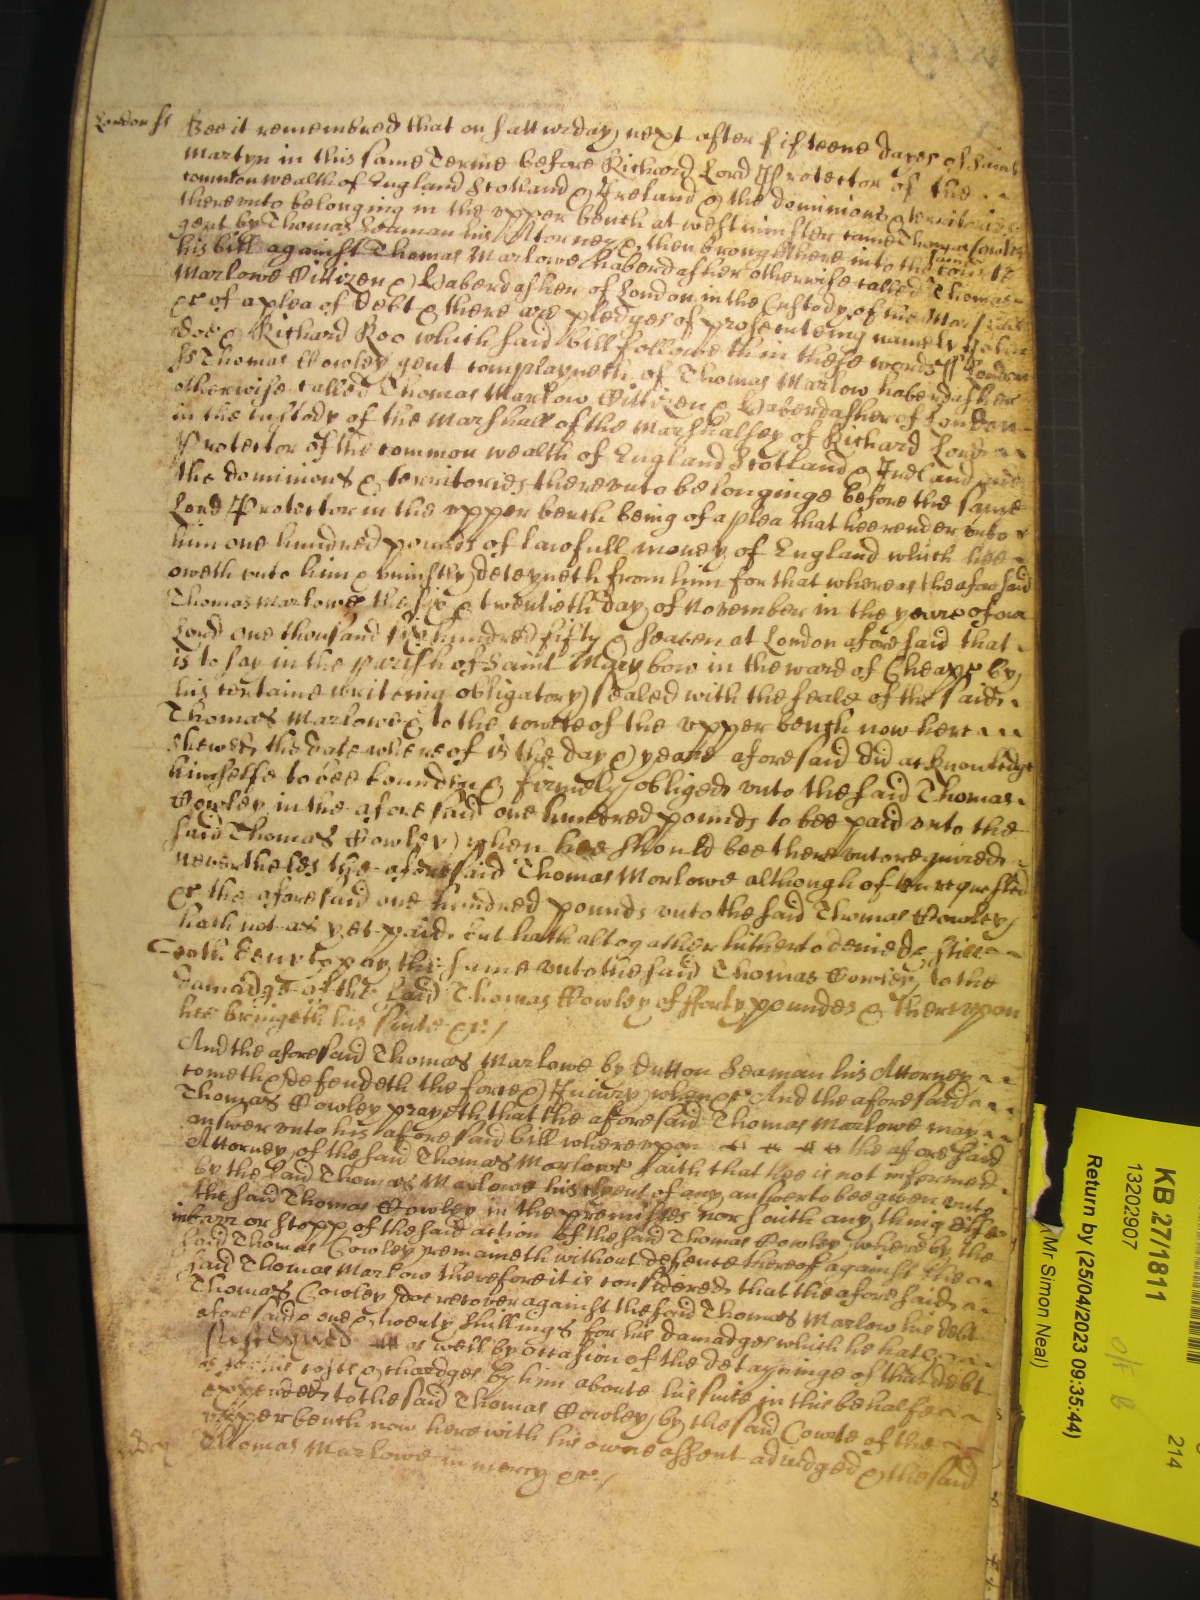 London ss Bee it remembred that on Satturday next after fifteene dayes of Saint
Martyn in this same Terme before Richard Lord Protector of the
commonwealth of England Scotland & Ireland & the dominions & territories
therevnto belonging in the vpper bench at Westminster came Thomas Cowley
gent by Thomas Seaman his Attorney & then brought here into the same Court
his bill against Thomas Marlowe haberdasher otherwise called Thomas
Marlowe Cittizen & Haberdasher of London in the Custody of the Marshall
&c of a plea of Debt & there are pledges of prosecuteing namely John
Doe & Richard Roo which said bill followeth in these words ss London
ss Thomas Cowley gent complayneth of Thomas Marlow haberdasher
otherwise called Thomas Marlow Cittizen & Haberdasher of London
in the custody of the Marshall of the Marshalsey of Richard Lord
Protector of the common wealth of England Scotland & Ireland and
the dominions & territories therevnto belonginge before the same
Lord Protector in the vpper bench being of a plea that hee render vnto
him one hundred pounds of lawfull money of England which hee
oweth vnto him & vniustly deteyneth from him for that whereas the aforesaid
Thomas Marlowe the six & twentieth day of November in the yeare of our
Lord one thousand six hundred fifty & seaven at London aforesaid that
is to say in the parish of Saint Mary bow in the ward of Cheape by
his certaine writeing obligatory sealed with the seale of the said
Thomas Marlowe & to the courte of the vpper bench now here
shewed the date whereof is the day & yeare aforesaid did acknowledge
himselfe to bee bounden & firmely obliged vnto the said Thomas
Cowley in the aforesaid one hundred pounds to bee paid vnto the
said Thomas Cowley when hee should bee therevnto required
neverthelesse the aforesaid Thomas Marlowe although often requested
&c the aforesaid one hundred pounds vnto the said Thomas Cowley
hath not as yet paid but hath altogather hitherto denied & still
doth deny to pay the same vnto the said Thomas Cowley to the
damadge of the said Thomas Cowley of fforty poundes & therevpon
hee bringeth his suite &c /
And the aforesaid Thomas Marlowe by Dutton Seaman his Attorney
cometh & defendeth the force & Iniury when &c And the aforesaid
Thomas Cowley prayeth that the aforesaid Thomas Marlowe may
answer vnto his aforesaid bill wherevpon the aforesaid
Attorney of the said Thomas Marlowe saith that hee is not informed
by the said Thomas Marlowe his clyent of any answer to bee given vnto
the said Thomas Cowley in the premisses nor saith any thing else
in barr or stopp of the said action of the said Thomas Cowley whereby the
said Thomas Cowley remaineth without defence thereof against the
said Thomas Marlow therefore it is considered that the aforesaid
Thomas Cowley doe recover against the said Thomas Marlow his debt
aforesaid & one & twenty shillings for his damadges which he hath
susteyned as well by occasion of the deteyninge of that debt
as for his costs & chardges by him aboute his suite in this behalfe
expended to the said Thomas Cowley by the said Courte of the
vpper bench now here with his owne assent adiudged & the said
Thomas Marlowe in mercy &c /
KB 27/1811
13202907
Return by (25/04/2023 09:35:44)
(Mr Simon Neal)
214